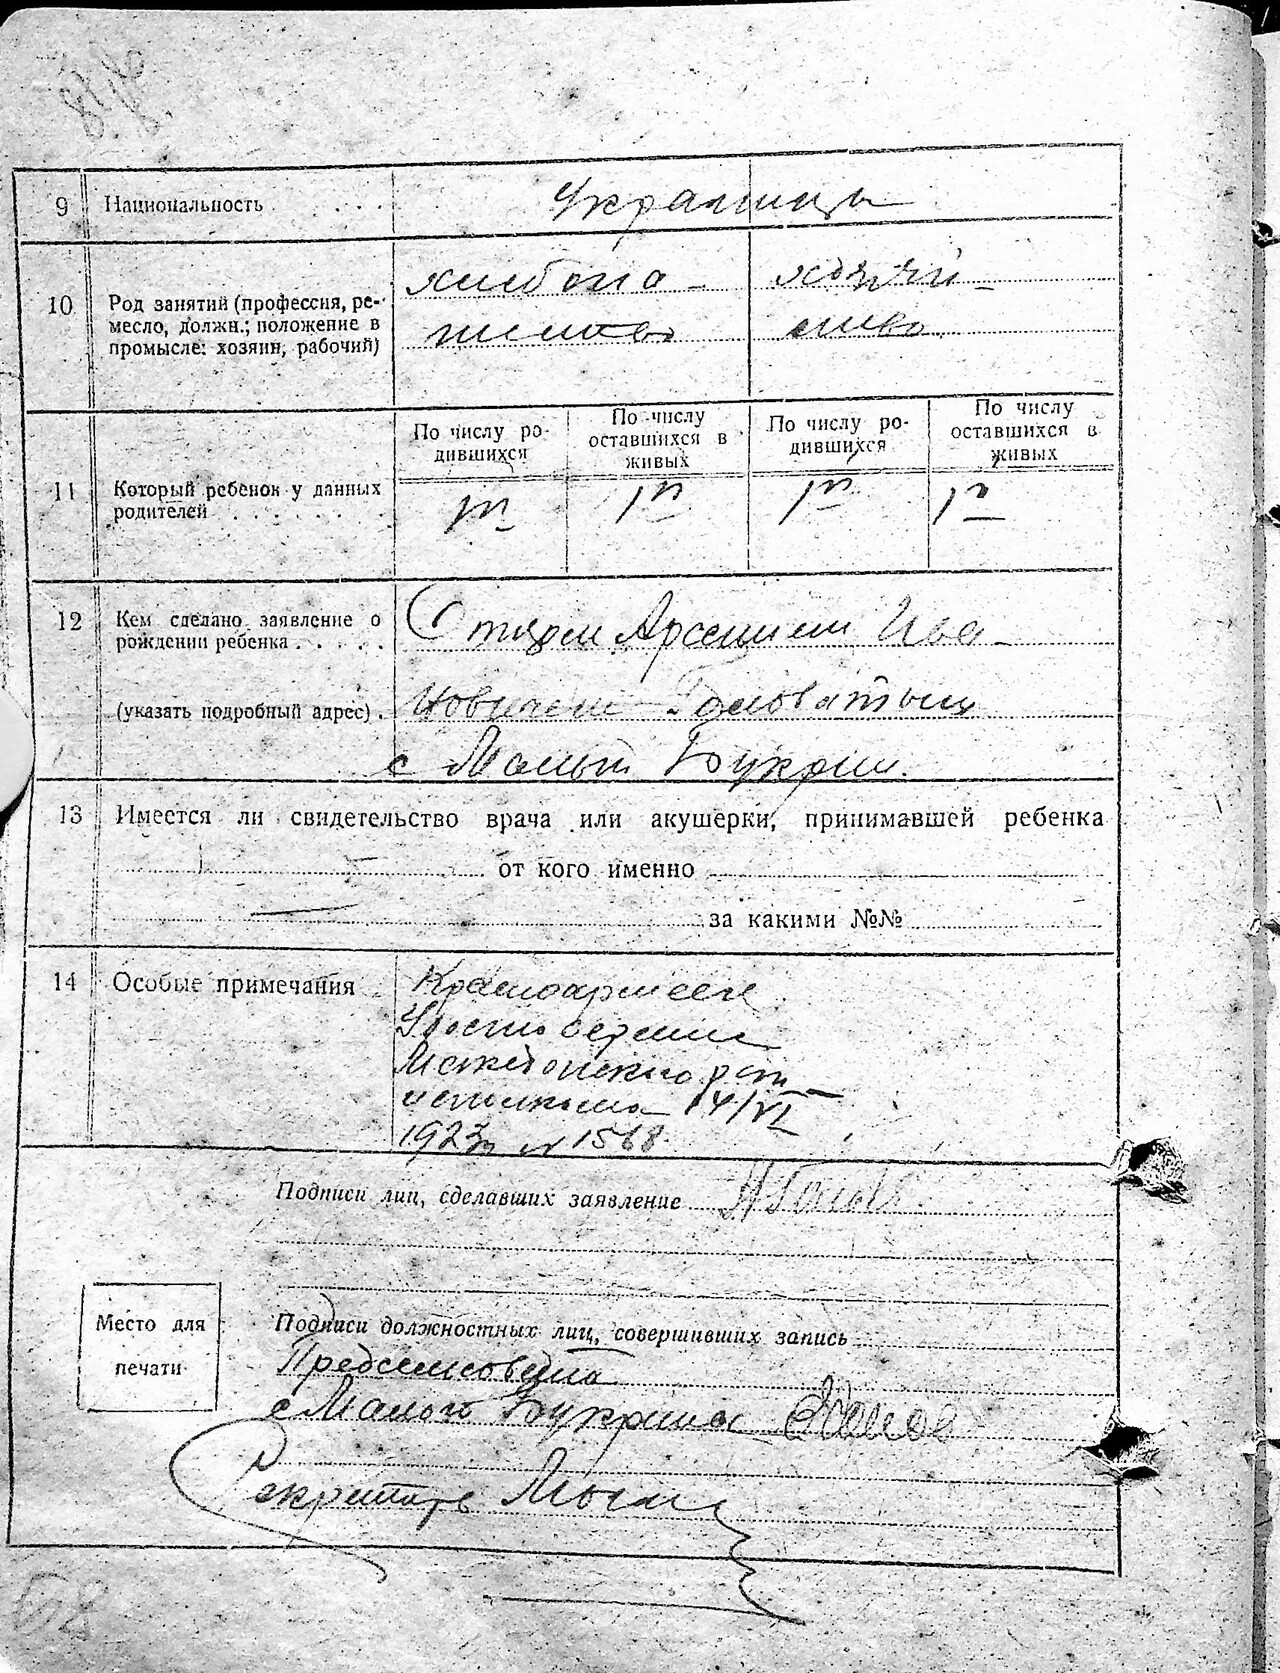 9 Национальность Украинцы
10 Род занятий (профессия, ре-
месло, должн.; положение в
промысле: хозяин, рабочий)
хлебопа-
шество
хозяй-
ство
11 Который ребенок у данных
родителей
По числу ро-
дившихся
По числу
оставшихся в
живых
По числу ро-
дившихся
По числу
оставшихся в
живых
1й 1й 1й 1й
12 Кем сделано заявление о
рождении ребенка
(указать подробный адрес)
Отцом Арсением Ива-
новичем Головатым
с Малый Букрин.
13 Имеется ли свидетельство врача или акушерки, принимавшей ребенка
от кого именно
за какими №№
14 Особые примечания
Красноармеец
исполкома 14/VI
1923 № 1568
Подписи лиц, сделавших заявление
Место для
печати
Подписи должностных лиц, совершивших запись
с Малого Букрина
Секретарь